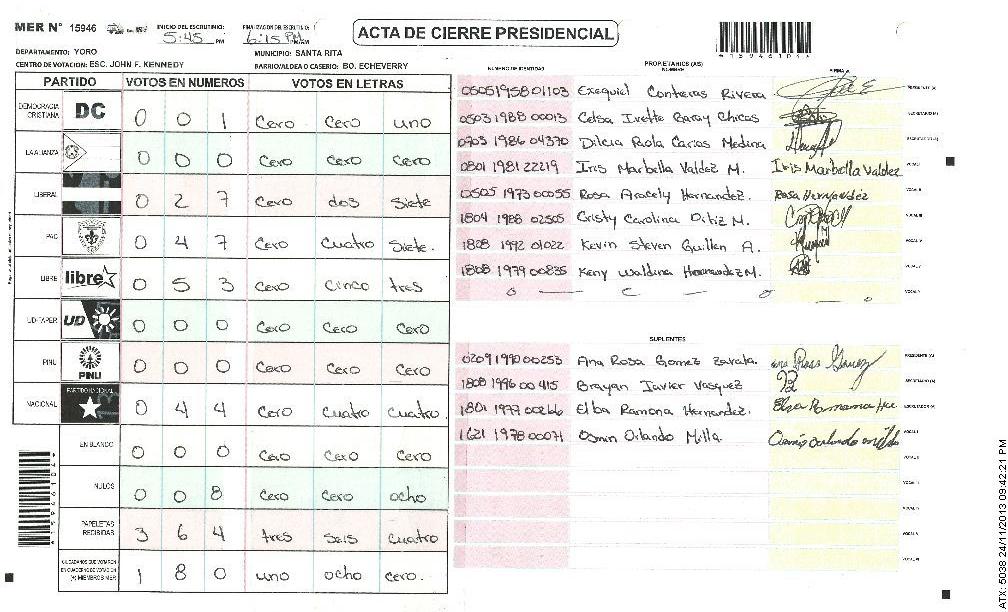 MER N° 15946
INICIO DEL ESCRUTINIO:
5:45 PM
FINALIZACIÓN DEL ESCRUTINIO:
6:15 PM
ACTA DE CIERRE PRESIDENCIAL
DEPARTAMENTO: YORO
MUNICIPIO: SANTA RITA
CENTRO DE VOTACION: ESC. JOHN F. KENNEDY
BARRIO/ALDEA O CASERIO: BO. ECHEVERRY
PARTIDO VOTOS EN NUMEROS VOTOS EN LETRAS
DEMOCRACIA CRISTIANA DC 0 0 1 Cero Cero uno
LA ALIANZA 0 0 0 Cero Cero Cero
LIBERAL 0 2 7 Cero dos Siete
PAC 0 4 7 Cero Cuatro Siete.
LIBRE libre 0 5 3 Cero Cinco tres
UD-FAPER UD 0 0 0 Cero Cero Cero
PINU PINU 0 0 0 Cero Cero Cero
NACIONAL PARTIDO NACIONAL 0 4 4 Cero Cuatro Cuatro.
EN BLANDO 0 0 0 Cero Cero Cero
NULOS 0 0 8 Cero Cero ocho
PAPELETAS RECIBIDAS 3 6 4 tres Seis Cuatro
CIUDADANOS QUE VOTARON EN CUADERNO DE VOTACION (+) MIEMBROS MER 1 8 0 uno ocho cero.
NUMERO DE IDENTIDAD PROPIETARIOS (AS) NOMBRE FIRMA
0505195801103 Exequiel Contreras Rivera PRESIDENTE (A)
0503 1988 00013 Celsa Ivette Garay Chicas SECRETARIO (A)
0703 1986 04370 Dilcia Rola Carias Medina ESCRUTADOR (A)
0801 1981 22219 Iris Marbella Valdez M. Iris Marbella Valdez VOCAL I
0505 1973 00055 Rosa Aracely Hernandez. Rosa Hernandez VOCAL II
1804 1988 02505 Cristy Carolina Ortiz M. VOCAL III
1808 1992 01022 Kevin Steven Guillen A. VOCAL IV
1808 1979 00835 Keny Waldina Hernandez M. VOCAL V
SUPLENTES
0209 1990 00253 Ana Rosa Gomez Zavala. PRESIDENTE (A)
1808 1996 00415 Brayan Javier Vasquez SECRETARIO (A)
1801 1977 00266 Elba Ramona Hernandez. ESCRUTADOR (A)
1621 1978 00071 Osman Orlando Milla. VOCAL I
ATX: 5038 24/11/2013 09:42:21 PM